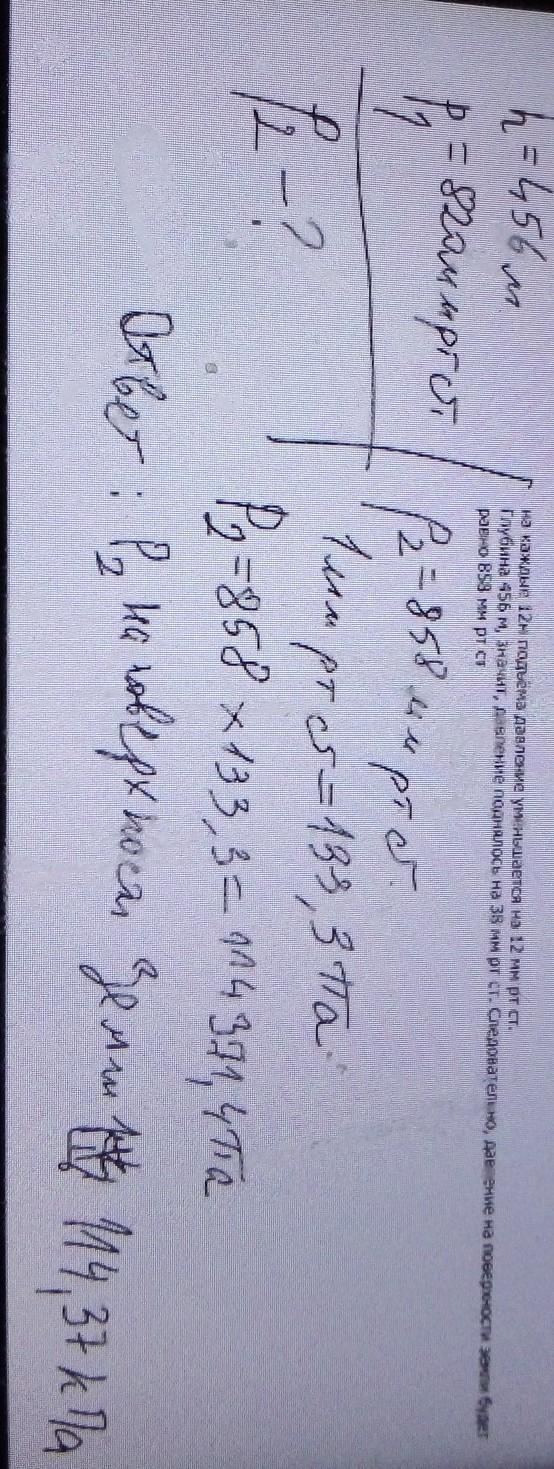 h = 456 м
P₁ = 820 мм рт ст
P₂ - ?
на каждые 12м подъема давление уменьшается на 12 мм рт ст.
Глубина 456 м, значит, давление поднялось на 38 мм рт ст. Следовательно, давление на поверхности земли будет
равно 858 мм рт ст
P₂ = 858 мм рт ст.
1 мм рт ст = 133,3 Па
P₂ = 858 × 133,3 = 114371,4 Па
Ответ: P₂ на поверхности Земли 114,37 кПа